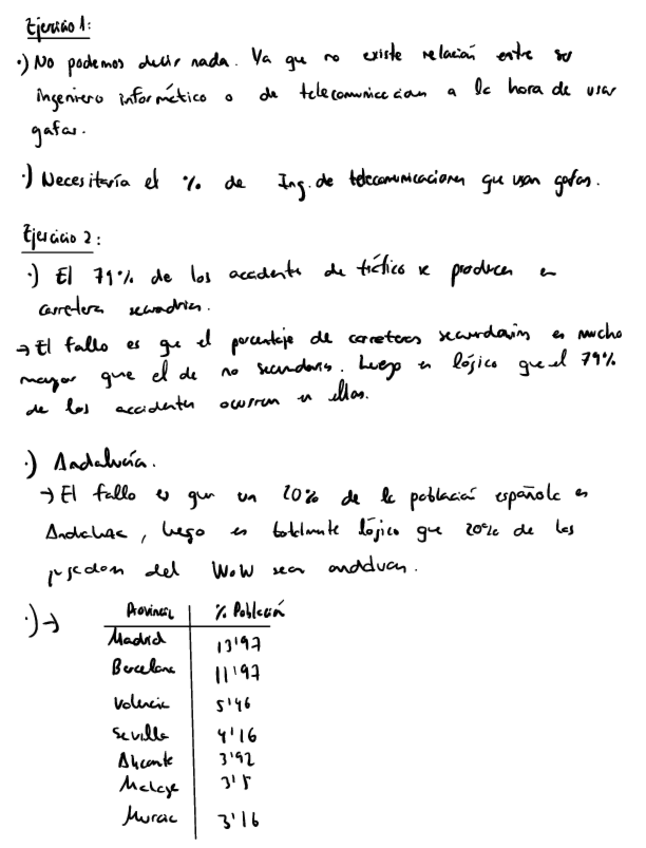 Ejercicio 1:
·) No podemos decir nada. Ya que no existe relación entre ser
ingeniero informático o de telecomunicacion a la hora de usar
gafas.
·) Necesitaría el % de Ing. de telecomunicaciones que usan gafas.
Ejercicio 2:
·) El 79% de los accidentes de tráfico se producen en
carretera secundaria.
→ El fallo es que el porcentaje de carreteras secundarias es mucho
mayor que el de no secundaria. Luego es lógico que el 79%
de los accidentes ocurran en ellas.
·) Andalucía.
→ El fallo es que un 20% de la población española es
Andaluza, luego es totalmente lógico que 20% de los
jugadores del WoW sean andaluces.
·) →
Provincia % Población
Madrid 13'97
Barcelona 11'97
Valencia 5'46
Sevilla 4'16
Alicante 3'92
Malaga 3'5
Murcia 3'16